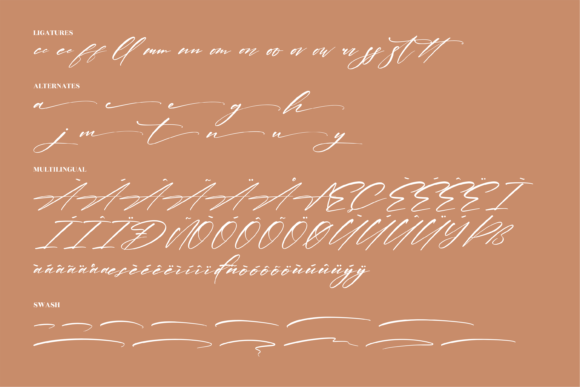 LIGATURES
cc ce ff ll mm nn om on oo or ow rr ss st tt
ALTERNATES
a c e g h
j m t n u y
MULTILINGUAL
À Á Â Ã Ä Å Æ Ç È É Ê Ë Ì
Í Î Ï Ð Ñ Ò Ó Ô Õ Ö Ù Ú Û Ü Ý Þ ß
à á â ã ä å æ ç è é ê ë ì í î ï ð ñ ò ó ô õ ö ù ú û ü ý ÿ
SWASH